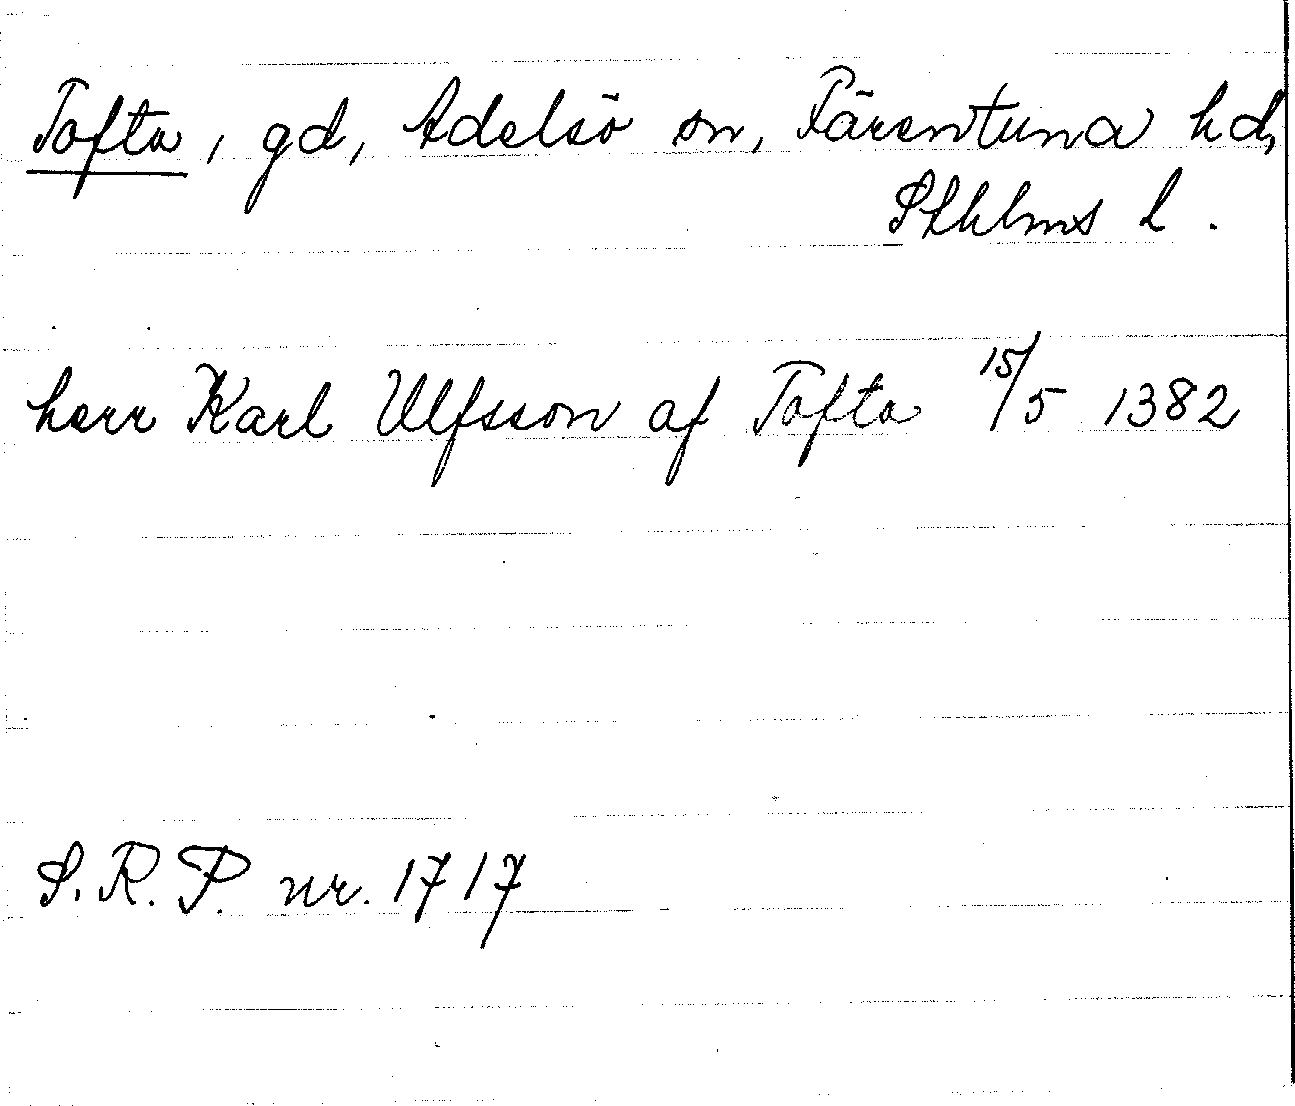 Tofta, gd, Adelsö sn, Färentuna hd,
Sthlms l.
herr Karl Ulfsson af Tofta 15/5 1382
S.R.P. nr. 1717